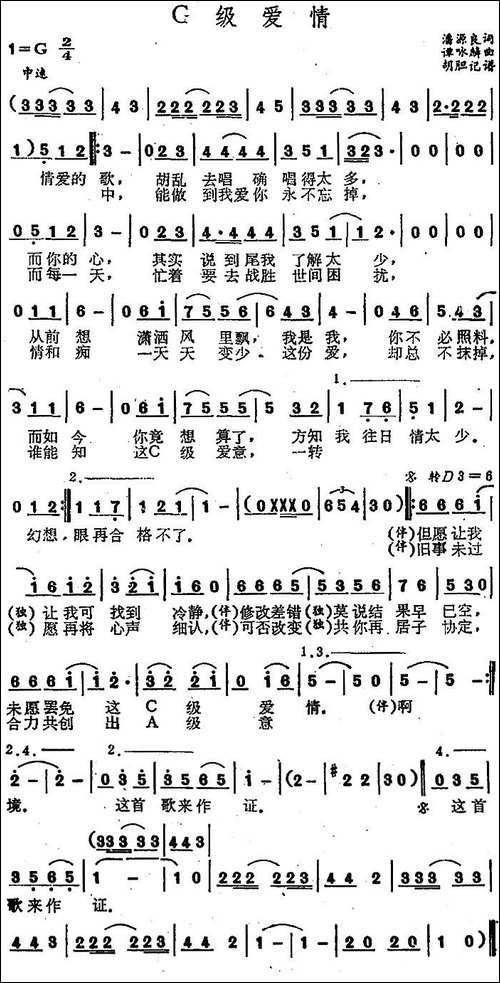 C 级 爱 情
1=G 2/4
潘源良 词
谭咏麟 曲
胡胆记谱
中速
(33333 | 43 | 222223 | 45 | 33333 | 43 | 2·222
1) 512 ‖: 3 - | 023 | 4444 | 351 | 323· | 00 | 00
情爱的 歌， 胡乱 去唱 确 唱得太 多，
中， 能做 到我爱你 永不忘 掉，
0512 | 3 - | 023 | 4·444 | 351 | 12· | 00 | 00
而你的 心， 其实 说到尾我 了解太 少，
而每一 天， 忙着 要去战胜 世间困 扰，
011 | 6 - | 061 | 7556 | 643 | 4 - | 046 | 5.43
从前 想 潇洒 风 里飘， 我是 我， 你不 必照料，
情和 痴 一天 天 变少。 这份 爱， 却总 不抹掉，
311 | 6 - | 061 | 7555 | 5 | 532 | 1 76 | 51 | 2 -
1.
而如 今 你竟 想 算了， 方知 我 往日 情太 少。
谁能 知 这C 级 爱意， 一转
2.
转D3=6
012 :‖ 117 | 121 | 1 - | (0XXX0 | 654 | 30) :‖ 6661
3
幻想，眼再合 格不了。 (伴)但愿让我
(伴)旧事未过
1612 | 321 | 160 | 6665 | 3235 | 76 | 530
(独) 让我可 找到 冷静，(伴)修改差错(独)莫说结 果早 已空，
(独) 愿再将 心声 细认，(伴)可否改变(独)共你再 居子 协定，
6661 | 12· | 321 | 21 | 016 | 5 - | 50 | 5 - :‖
1.3.
未愿罢免 这 C 级 爱 情。 (伴)啊
合力共创 出 A 级 意
2.4. 2. 4.
2 - | 2 - | 035 | 3565 | 1 - | (2 - | #22 | 30) ‖ 035
境。 这首 歌来作 证。 这首
(33333 | 443
3565 | 1 - | 10 | 222223 | 442 | 33333
歌来作 证。
443 | 222223 | 442 | 1 - | 1 - | 2020 | 10) ‖